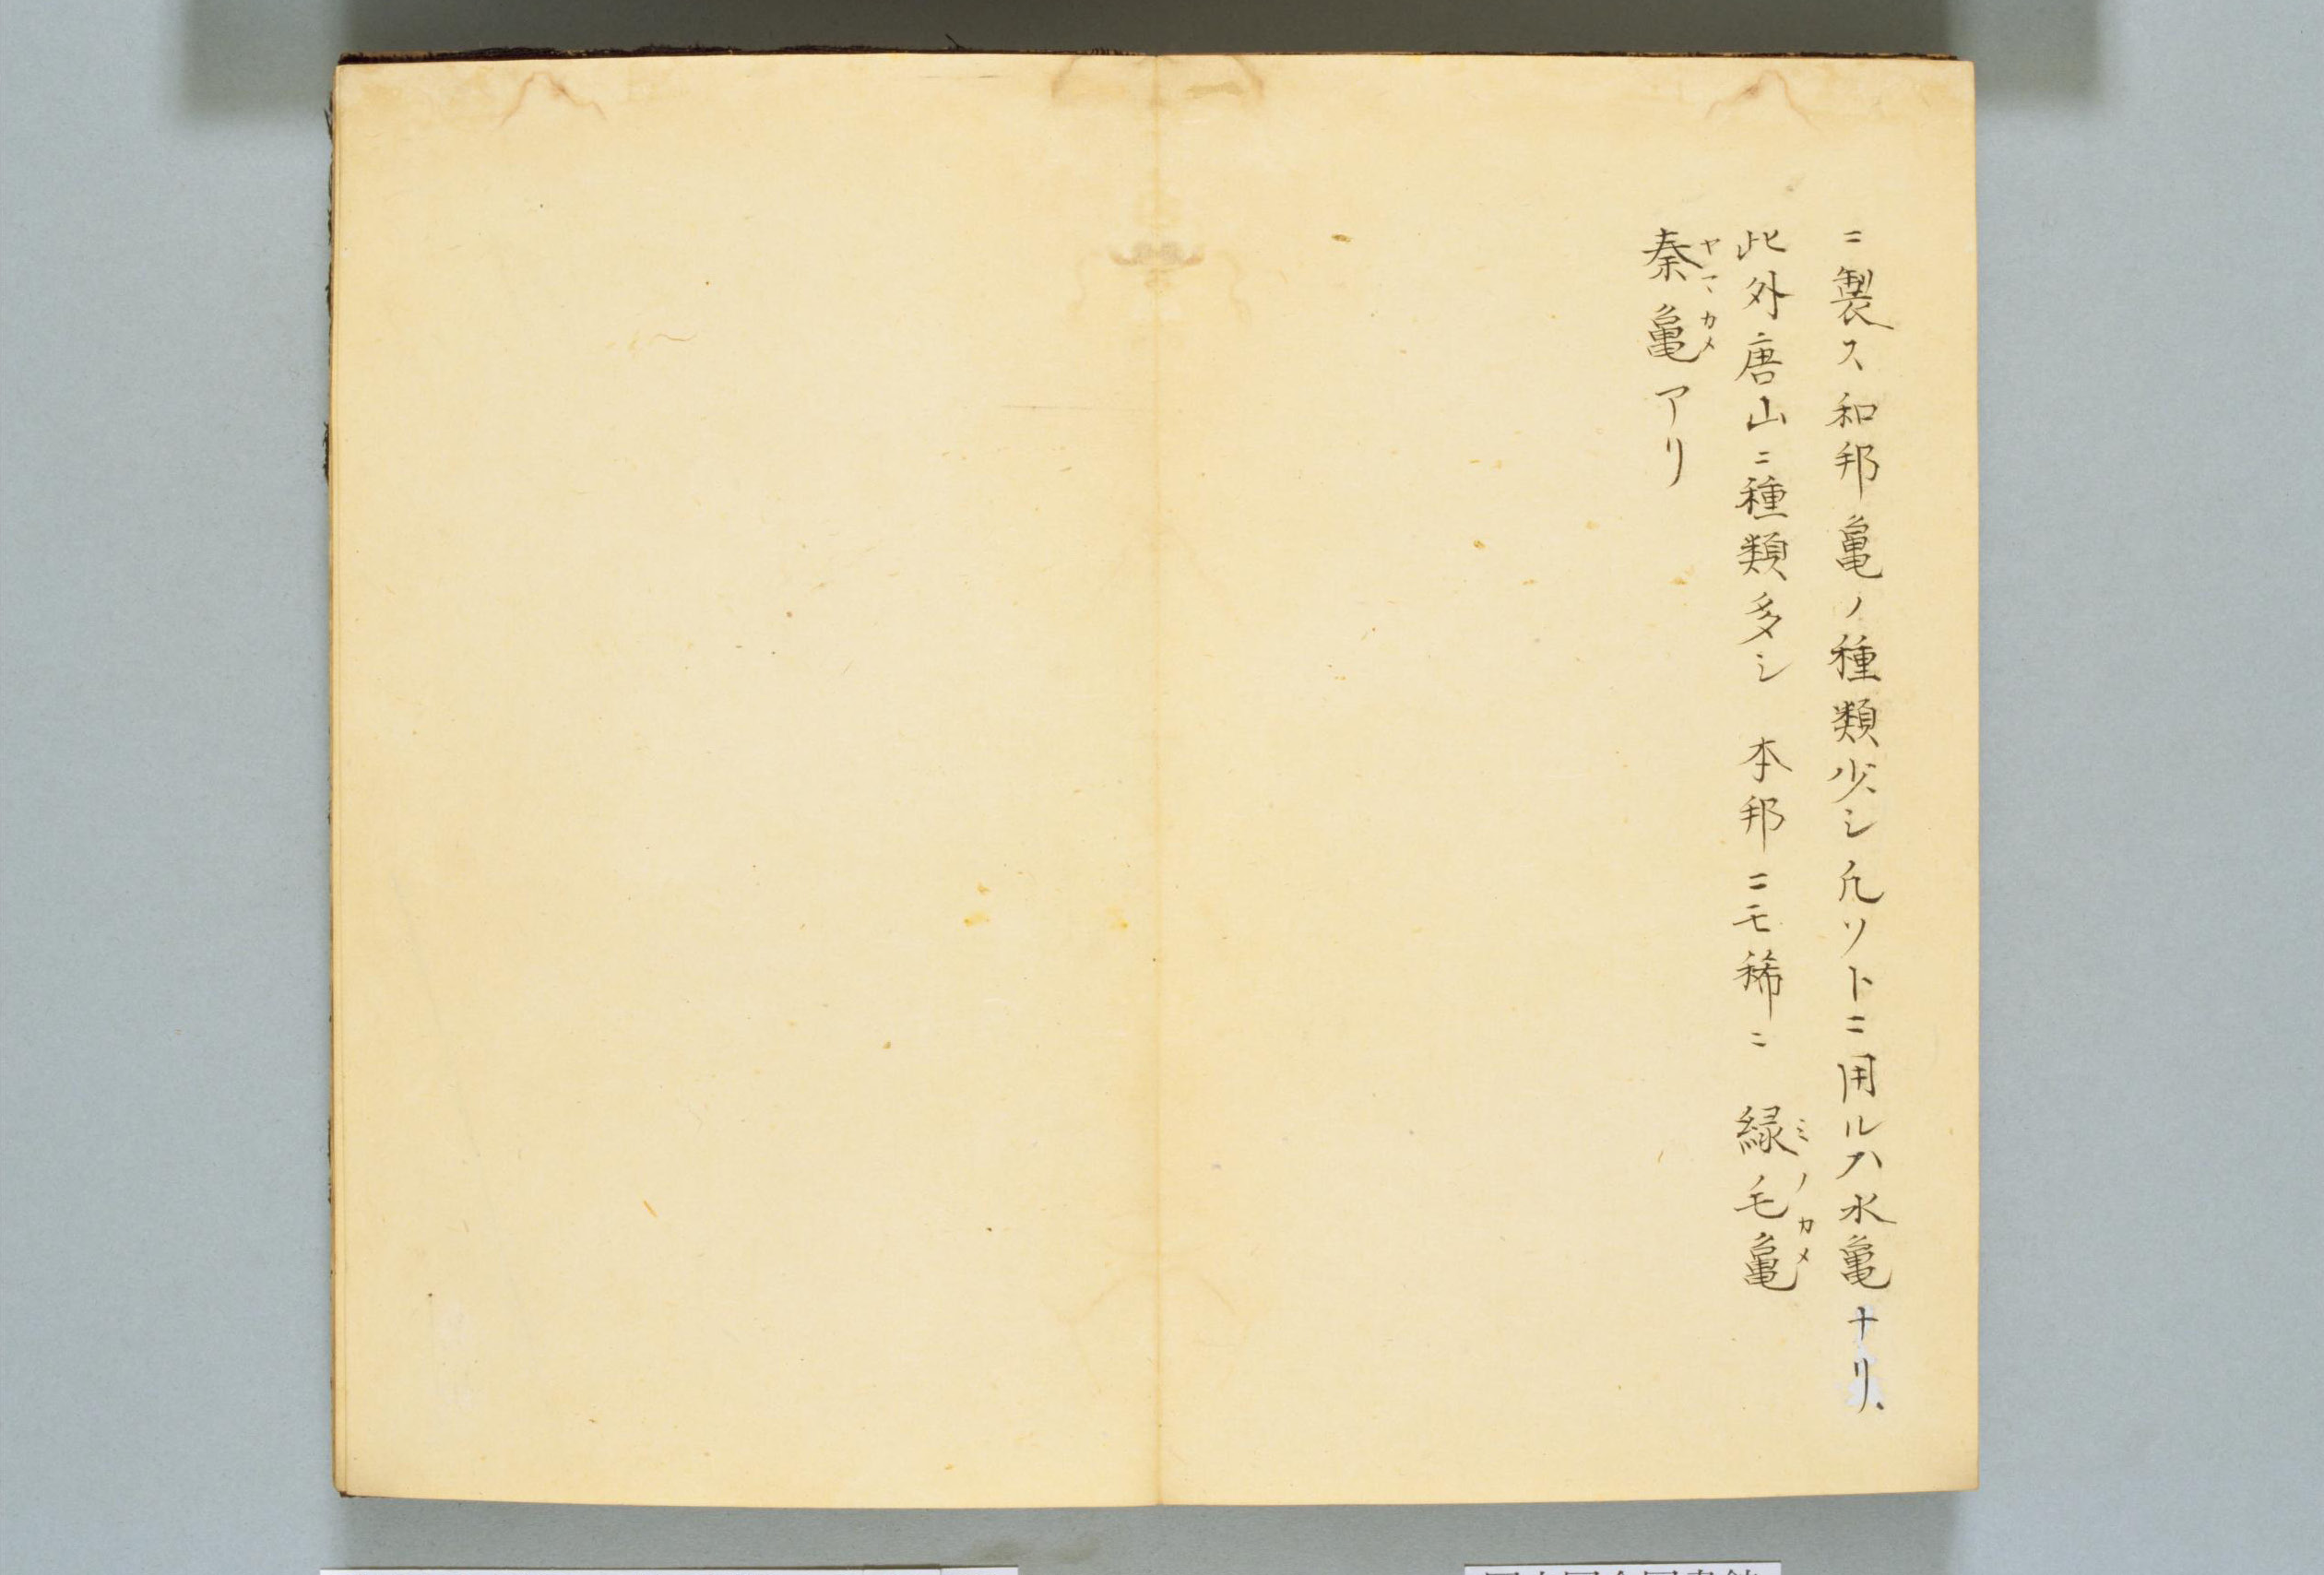 ニ製ス和邦亀ノ種類少シ凡ソトニ用ルハ水亀ナリ、
此外唐山ニ種類多シ 本邦ニモ稀ニ 緑毛亀
ミノカメ
秦亀アリ
ヤマカメ